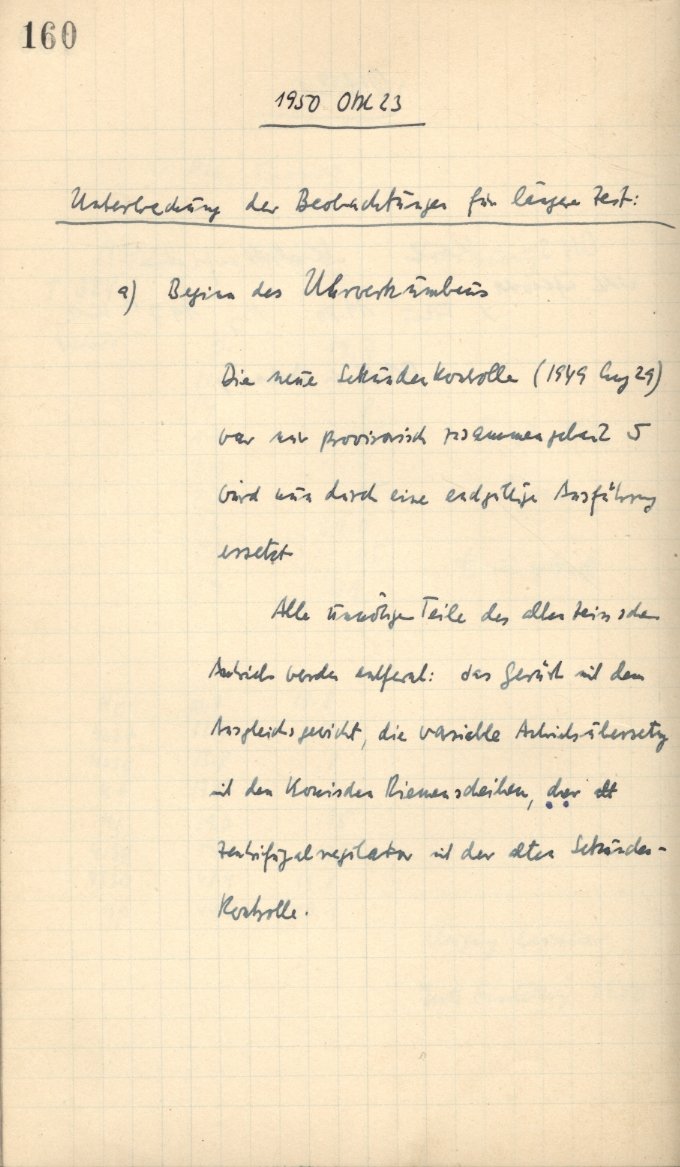 160
1950 Okt 23
Unterbrechung der Beobachtungen für längere Zeit:
a) Beginn des Uhrwerkumbaus
Die neue Sekundenkontrolle (1949 Aug 29)
war nur provisorisch zusammengebaut &
wird nun durch eine endgültige Ausführung
ersetzt
Alle unnötigen Teile des alten Zeissschen
Antriebs werden entfernt: das Gerüst mit dem
Ausgleichsgewicht, die variable Antriebsübersetzg
mit den konischen Riemenscheiben, der
Zentrifugalregulator mit der alten Sekunden-
Kontrolle.